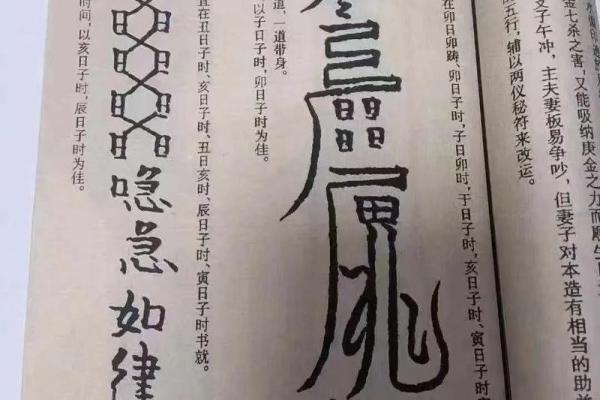 金七杀之害，又能吸纳庚金之力而顺生
子午冲，主夫妻板易争吵，但妻子对本造有相当的助
五行，辅以两仪秘符来改运。
在卯日卯畴、卯日子时，子日卯时，于日子时，亥日子时、寅日子时
道，一道带身。
以子日子时，卯日子时为佳。
宜在丑日子时、亥日子时、丑日亥时、辰日子时、寅日子时书就。
急如律
时间，以亥日子时，辰日子时为佳。